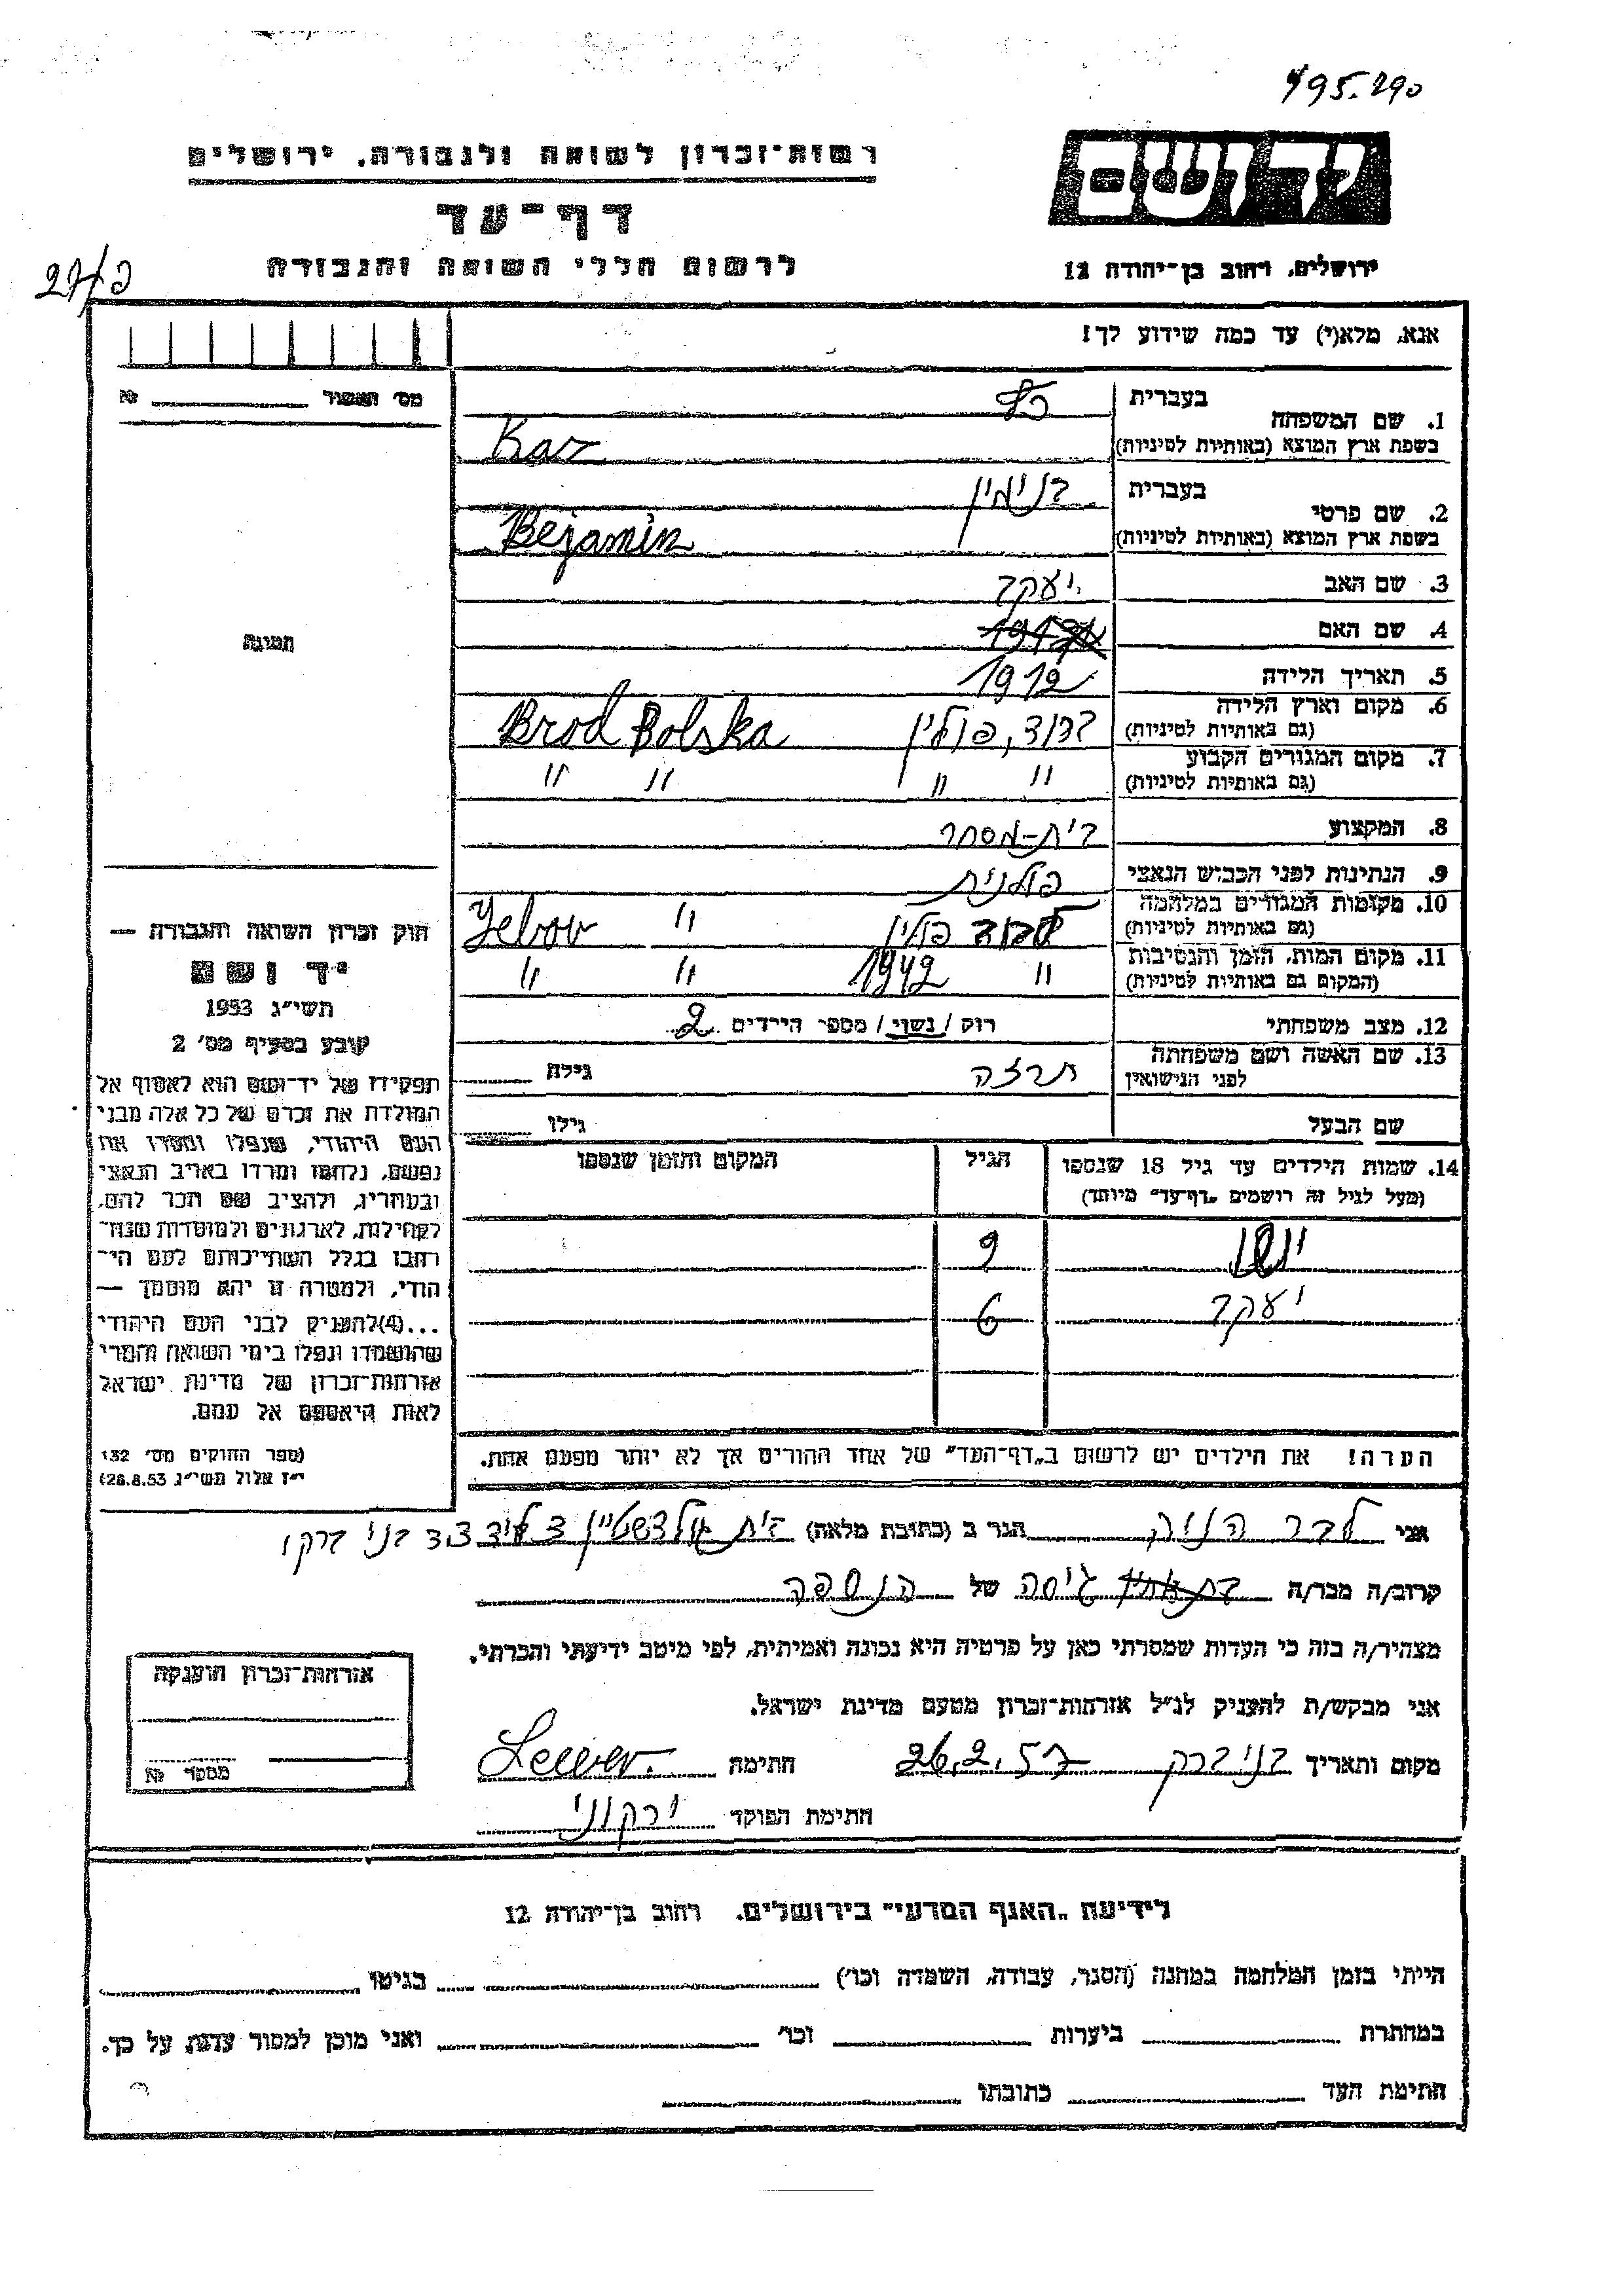 495.290
ידושם
רשות־זכרון לשואה ולגבורה, ירושלים
דף־עד
לרשום חללי השואה והגבורה
ירושלים, רחוב בן־יהודה 12
אנא, מלא(י) עד כמה שידוע לך!
מס' האשור № 
1. שם המשפחה בעברית כץ
בשפת ארץ המוצא (באותיות לטיניות) Kaz
2. שם פרטי בעברית בנימין
בשפת ארץ המוצא (באותיות לטיניות) Bejamin
3. שם האב יעקב
4. שם האם
5. תאריך הלידה 1912
6. מקום וארץ הלידה
(גם באותיות לטיניות) ברוד, פולין Brod Polska
7. מקום המגורים הקבוע
(גם באותיות לטיניות) " " " "
8. המקצוע בית-מסחר
9. הנתינות לפני הכבוש הנאצי פולנית
10. מקומות המגורים במלחמה
(גם באותיות לטיניות) פולין "
11. מקום המות, הזמן והנסיבות
(המקום גם באותיות לטיניות) " 1942 " "
12. מצב משפחתי רוק / נשוי / מספר הילדים 2
13. שם האשה ושם משפחתה
לפני הנישואין תרזה גילה
שם הבעל גילו
14. שמות הילדים עד גיל 18 שנספו הגיל המקום והזמן שנספו
(מעל לגיל זה רושמים „דף־עד" מיוחד)
9
יעקב 6
הערה! את הילדים יש לרשום ב„דף־העד" של אחד ההורים אך לא יותר מפעם אחת.
תמונה
חוק זכרון השואה והגבורה —
יד ושם
תשי"ג 1953
קובע בסעיף מס' 2
תפקידו של יד־ושם הוא לאסוף אל
המולדת את זכרם של כל אלה מבני
העם היהודי, שנפלו ומסרו את
נפשם, נלחמו ומרדו באויב הנאצי
ובעוזריו, ולהציב שם וזכר להם,
לקהילות, לארגונים ולמוסדות שנח־
רבו בגלל השתייכותם לעם הי־
הודי, ולמטרה זו יהא מוסמך —
...(4)להעניק לבני העם היהודי
שהושמדו ונפלו בימי השואה והמרי
אזרחות־זכרון של מדינת ישראל
לאות היאספם אל עמם.
(ספר החוקים מס' 132
י"ז אלול תשי"ג 28.8.53)
אני לבר הגר ב (כתובת מלאה) בית גולדשטיין בני ברק
קרוב/ה מכר/ה גיסה של הנספה
מצהיר/ה בזה כי העדות שמסרתי כאן על פרטיה היא נכונה ואמיתית, לפי מיטב ידיעתי והכרתי.
אני מבקש/ת להעניק לנ"ל אזרחות־זכרון מטעם מדינת ישראל.
מקום ותאריך בני ברק 26.2.57 חתימה
חתימת הפוקד ירקוני
אזרחות־זכרון הוענקה
מספר №
לידיעת „האגף המדעי" בירושלים, רחוב בן־יהודה 12
הייתי בזמן המלחמה במחנה (הסגר, עבודה, השמדה וכו') בגיטו
במחתרת ביערות וכו' ואני מוכן למסור עדות על כך.
חתימת העד כתובתו